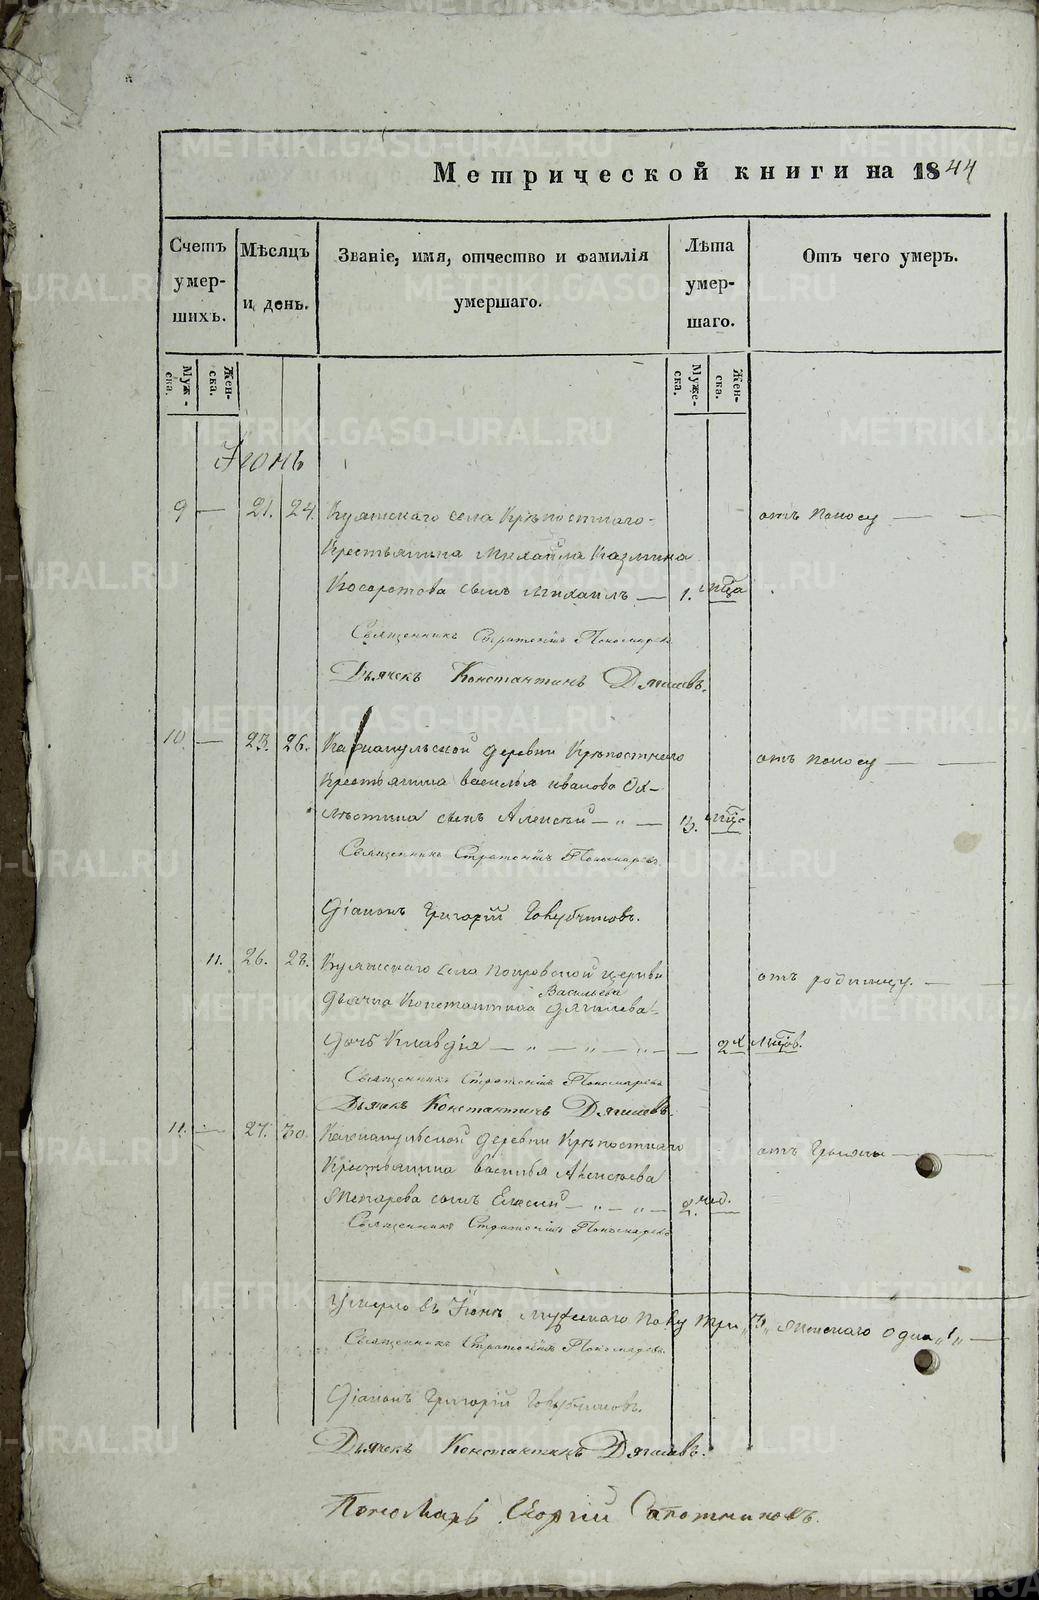 Метрической книги на 1844
Счетъ умер- шихъ.
Мѣсяцъ и день.
Званіе, имя, отчество и фамилія умершаго.
Лѣта умер- шаго.
Отъ чего умеръ.
Муж- ска.
Жен- ска.
Муже- ска.
Жен- ска.
Іюнь
9 — 21. 24. Куяшскаго села Крѣпостнаго отъ поносу
Крестьянина Михайла Казмина
Косоротова сынъ Михаилъ — 1. мца
Священникъ Стратоникъ Пономаревъ
Дьячекъ Константинъ Дягилевъ.
10. — 23. 26. деревни Крѣпостнаго отъ поносу
Крестьянина Василья Иванова Ох-
лѣстина сынъ Алексѣй — " — 3. мца
Священникъ Стратоникъ Пономаревъ
Діаконъ Григорій
11. 26. 28. Куяшскаго села Покровской церкви отъ родимцу.
Васильева
дьячка Константина Дягилева
дочь Клавдія — " — " — " — 2х лѣтов.
Священникъ Стратоникъ Пономаревъ
Дьячекъ Константинъ Дягилевъ.
11. — 27. 30. деревни Крѣпостнаго отъ грыжи
Крестьянина Василья Алексѣева
сынъ Елисей — " — " — 2. нед.
Священникъ Стратоникъ Пономаревъ
Умерло въ Іюнѣ мужескаго полу три „3„ женскаго одна „1„ —
Священникъ Стратоникъ Пономаревъ
Діаконъ Григорій
Дьячекъ Константинъ Дягилевъ.
Пономарь Георгій Сапожниковъ.
METRIKI.GASO-URAL.RU